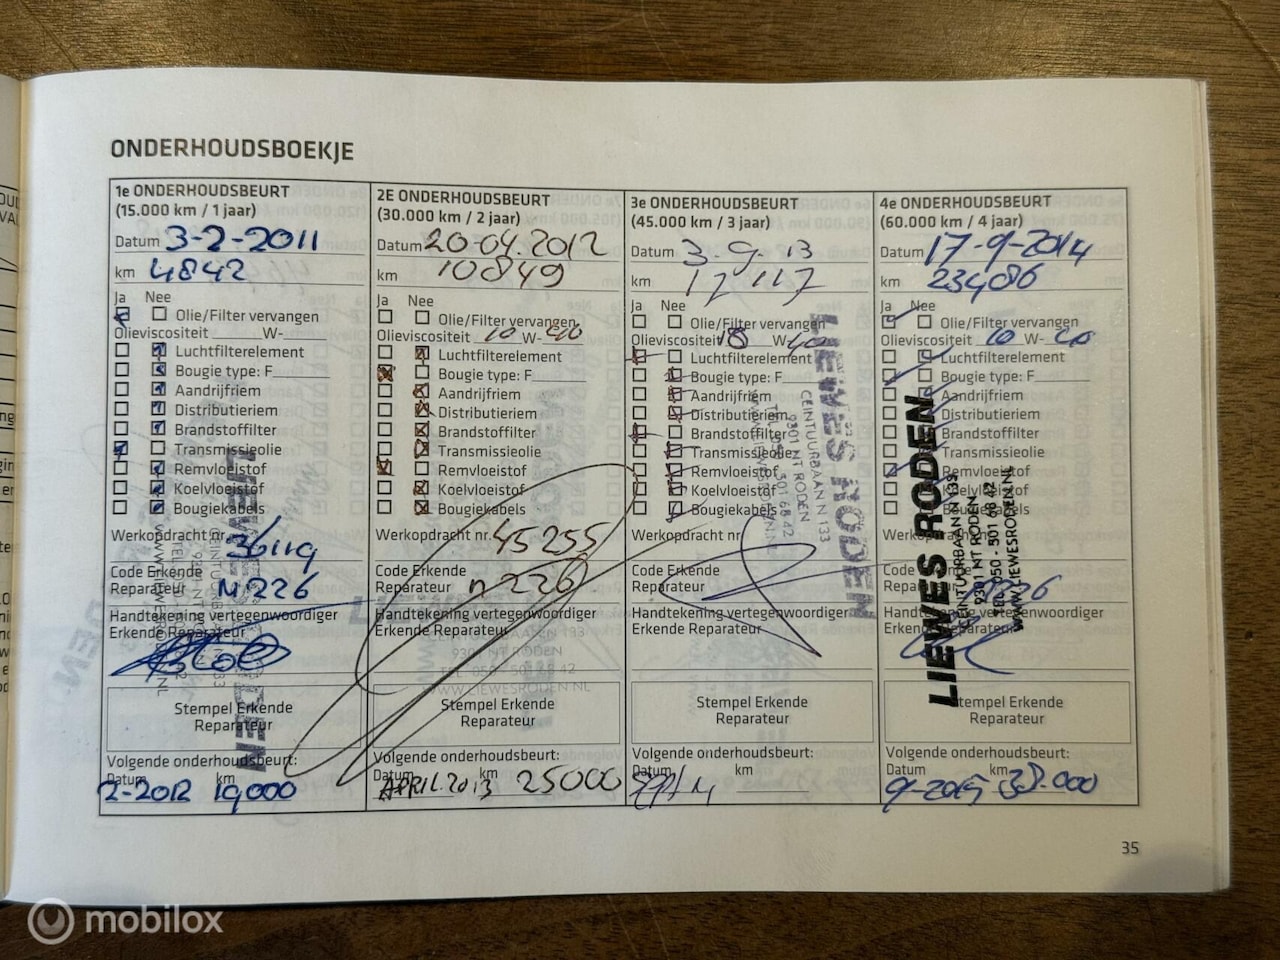 ONDERHOUDSBOEKJE
1e ONDERHOUDSBEURT
(15.000 km / 1 jaar)
Datum 3-2-2011
km 4842
Ja Nee
Olie/Filter vervangen
Olieviscositeit W-
Luchtfilterelement
Bougie type: F
Aandrijfriem
Distributieriem
Brandstoffilter
Transmissieolie
Remvloeistof
Koelvloeistof
Bougiekabels
Werkopdracht nr. 36119
Code Erkende
Reparateur N226
Handtekening vertegenwoordiger
Erkende Reparateur
Stempel Erkende
Reparateur
Volgende onderhoudsbeurt:
Datum km
2-2012 19000
2E ONDERHOUDSBEURT
(30.000 km / 2 jaar)
Datum 20-04-2012
km 10849
Ja Nee
Olie/Filter vervangen
Olieviscositeit 10 W- 40
Luchtfilterelement
Bougie type: F
Aandrijfriem
Distributieriem
Brandstoffilter
Transmissieolie
Remvloeistof
Koelvloeistof
Bougiekabels
Werkopdracht nr. 45255
Code Erkende
Reparateur n226
Handtekening vertegenwoordiger
Erkende Reparateur
9301 NT RODEN
TEL. 050 - 501 68 42
WWW.LIEWESRODEN.NL
Stempel Erkende
Reparateur
Volgende onderhoudsbeurt:
Datum km
APRIL 2013 25000
3e ONDERHOUDSBEURT
(45.000 km / 3 jaar)
Datum 3-9-13
km 17117
Ja Nee
Olie/Filter vervangen
Olieviscositeit W- 40
Luchtfilterelement
Bougie type: F
Aandrijfriem
Distributieriem
Brandstoffilter
Transmissieolie
Remvloeistof
Koelvloeistof
Bougiekabels
LIEWES RODEN
CEINTUURBAAN N 133
9301 NT RODEN
Werkopdracht nr.
Code Erkende
Reparateur
Handtekening vertegenwoordiger
Erkende Reparateur
Stempel Erkende
Reparateur
Volgende onderhoudsbeurt:
Datum km
4e ONDERHOUDSBEURT
(60.000 km / 4 jaar)
Datum 17-9-2014
km
Ja Nee
Olie/Filter vervangen
Olieviscositeit 10 W- 40
Luchtfilterelement
Bougie type: F
Aandrijfriem
Distributieriem
Brandstoffilter
Transmissieolie
Remvloeistof
Koelvloeistof
Bougiekabels
LIEWES RODEN
CEINTUURBAAN N 133
9301 NT RODEN
TEL. 050 - 501 68 42
WWW.LIEWESRODEN.NL
Werkopdracht nr.
Code Erkende
Reparateur
Handtekening vertegenwoordiger
Erkende Reparateur
Stempel Erkende
Reparateur
Volgende onderhoudsbeurt:
Datum km
9-2015
35
mobilox